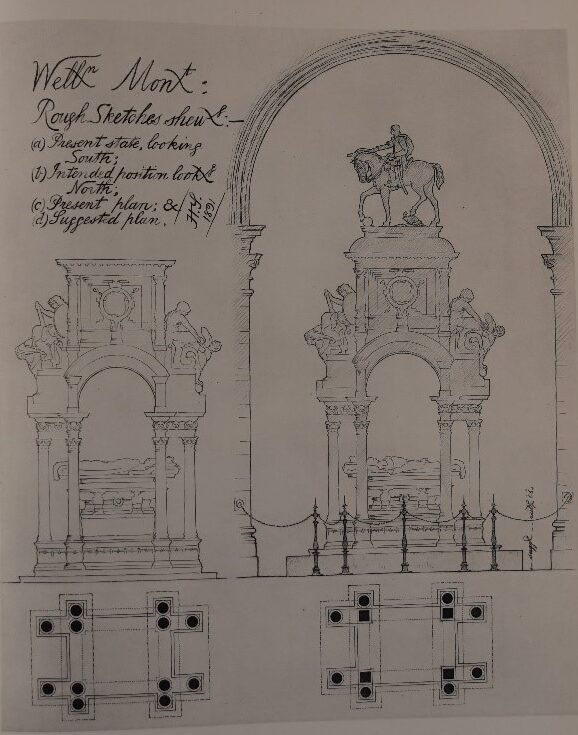 Wellⁿ Monᵗ:
Rough Sketches shewᵍ:—
(a) Present state, looking
South;
(b) Intended position lookᵍ
North;
(c) Present plan; &
(d) Suggested plan.
H.Y.
1891